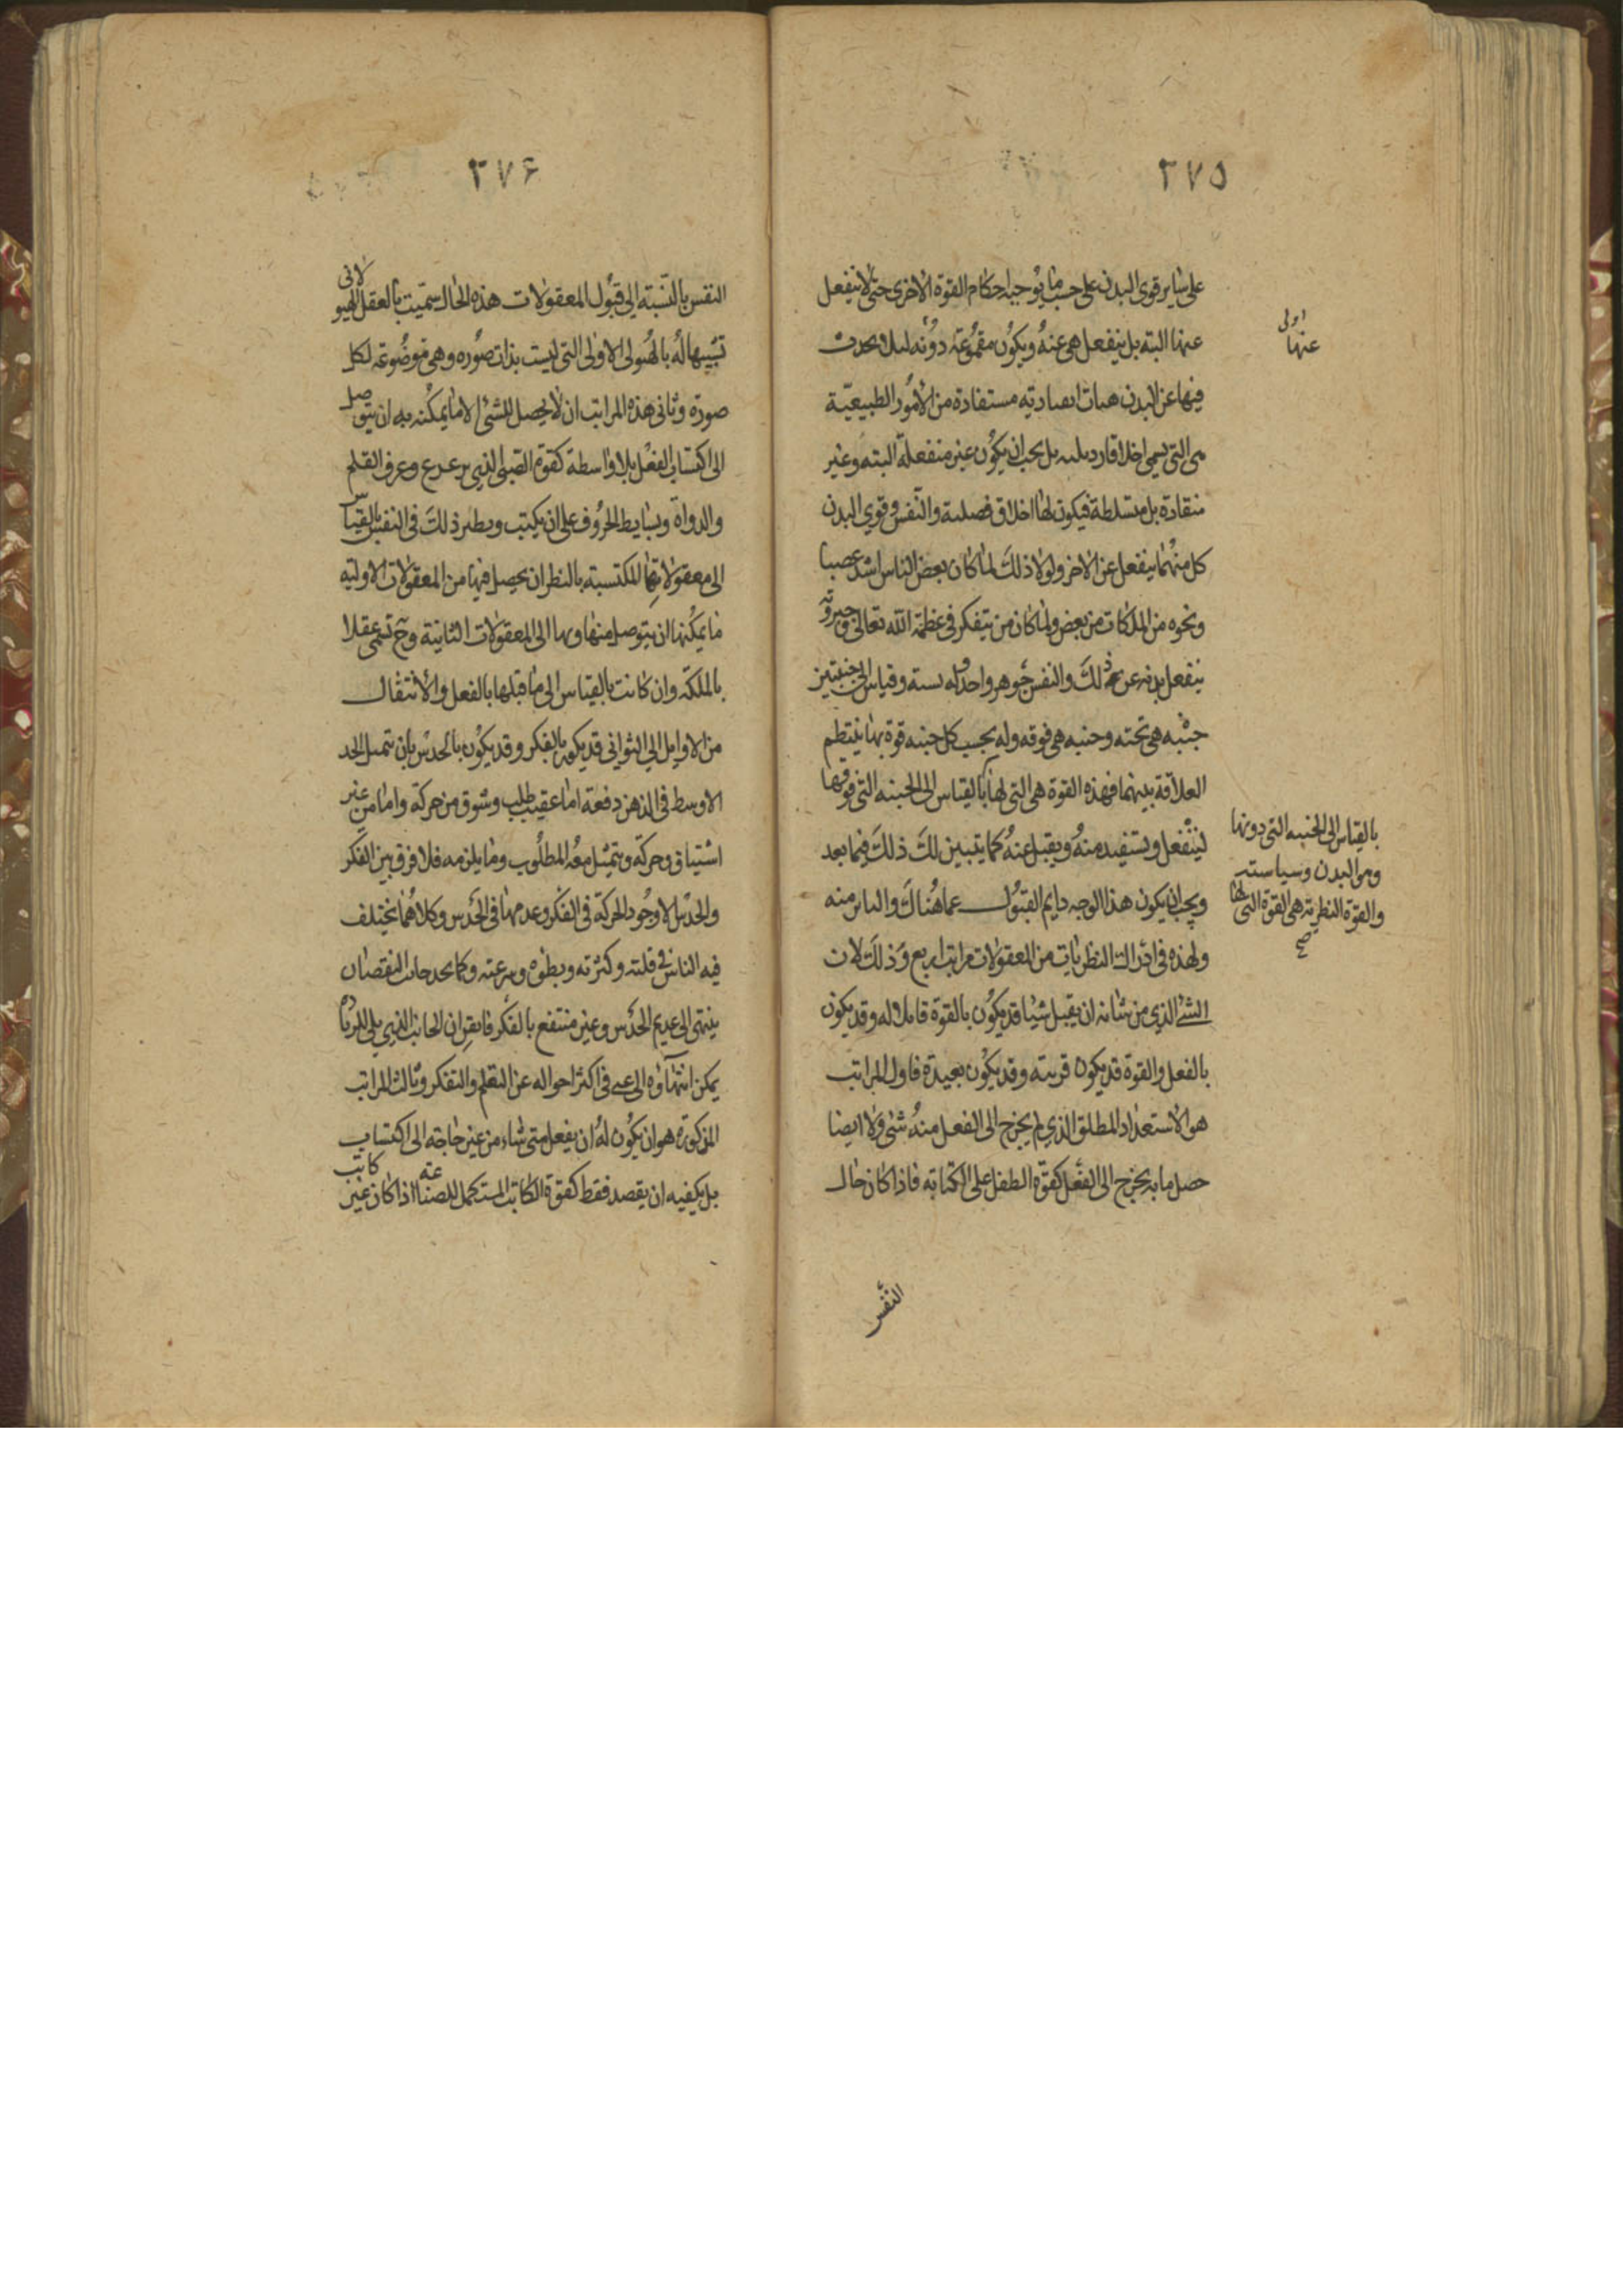 ٢٧٥
على ساير قوى البدن على حسب ما يوجبه احكام القوة الاخرى حتى لا ينفعل
عنها البته بل ينفعل هى عنه ويكون مقموعة دونه لئلا يحدث
فيها عن البدن هيات انقيادية مستفادة من الأمور الطبيعيّة
هى التى تسمى اخلاقا رديله بل يجب ان يكون غير منفعلة البته وغير
منقادة بل متسلطة فيكون لها اخلاق فضيلية والنفس وقوى البدن
كل منهما ينفعل عن الاخر ولولا ذلك لما كان بعض الناس اشد غضبا
ونحوه من الملكات من بعض ولما كان من يتفكر فى عظمة الله تعالى وجبروته
ينفعل بدنه عن ذلك والنفس جوهر واحد وله نسبة وقياس الى جنبتين
جنبه هى تحته وجنبه هى فوقه وله بحسب كل جنبه قوة بها ينتظم
العلاقة بينهما فهذه القوة هى التى لها بالقياس الى الجنبه التى فوقها
لينفعل ويستفيد منه ويقبل عنه كما يتبين لك ذلك فيما بعد
ويجب ان يكون هذا الوجه دايم القبول عما هناك والتاثر منه
ولهذه فى ادراك النظريات من المعقولات مراتب اربع وذلك لان
الشئ الذي من شانه ان يقبل شيئا قد يكون بالقوة قابلا له وقد يكون
بالفعل والقوة قد يكون قريبة وقد يكون بعيدة فاول المراتب
هو الاستعداد المطلق الذي لم يخرج الى الفعل منه شئ ولا ايضا
حصل ما به يخرج الى الفعل كقوة الطفل على الكتابة فاذا كان حال
النفس
اولى
عنها
بالقياس الى الجنبه التى دونها
وهو البدن وسياسته
والقوة النظرية هى القوة التى لها
صح
٢٧۶
النفس بالنسبة الى قبول المعقولات هذه الحال سميت بالعقل الهيولانى
تشبيها له بالهيولى الاولى التى ليست بذات صوره وهى موضوعة لكل
صورة وثانى هذه المراتب ان لا يحصل للشئ الا ما يمكنه به ان يتوصل
الى اكتساب الفعل بلا واسطة كقوة الصبى الذي ترعرع وعرف القلم
والدواة وبسايط الحروف على ان يكتب ونظير ذلك فى النفس بالقياس
الى معقولاتها المكتسبة بالنظر ان يحصل فيها من المعقولات الاولية
ما يمكنها ان يتوصل منها وبها الى المعقولات الثانية وح تسمى عقلا
بالملكة وان كانت بالقياس الى ما قبلها بالفعل والانتقال
من الاوايل الى الثوانى قد يكون بالفكر وقد يكون بالحدس بان يتمثل الحد
الاوسط فى الذهن دفعة اما عقيب طلب وشوق من حركة واما من غير
اشتياق وحركة ويتمثل معه المطلوب وما يلزمه فلا فرق بين الفكر
والحدس الا وجود الحركة فى الفكر وعدمها فى الحدس وكلاهما يختلف
فيه الناس فى قلته وكثرته وبطوه وسرعته وكما تجد جانب النقصان
ينتهى الى عديم الحدس وغير منتفع بالفكر فايقن ان الجانب الذي يلى الزيادة
يمكن انتهاؤه الى غنى فى اكثر احواله عن التعلم والتفكر وثالث المراتب
المذكورة هو ان يكون له ان يفعل متى شاء من غير حاجة الى اكتساب
بل يكفيه ان يقصد فقط كقوة الكاتب المستكمل للصناعة اذا كان غير كاتب